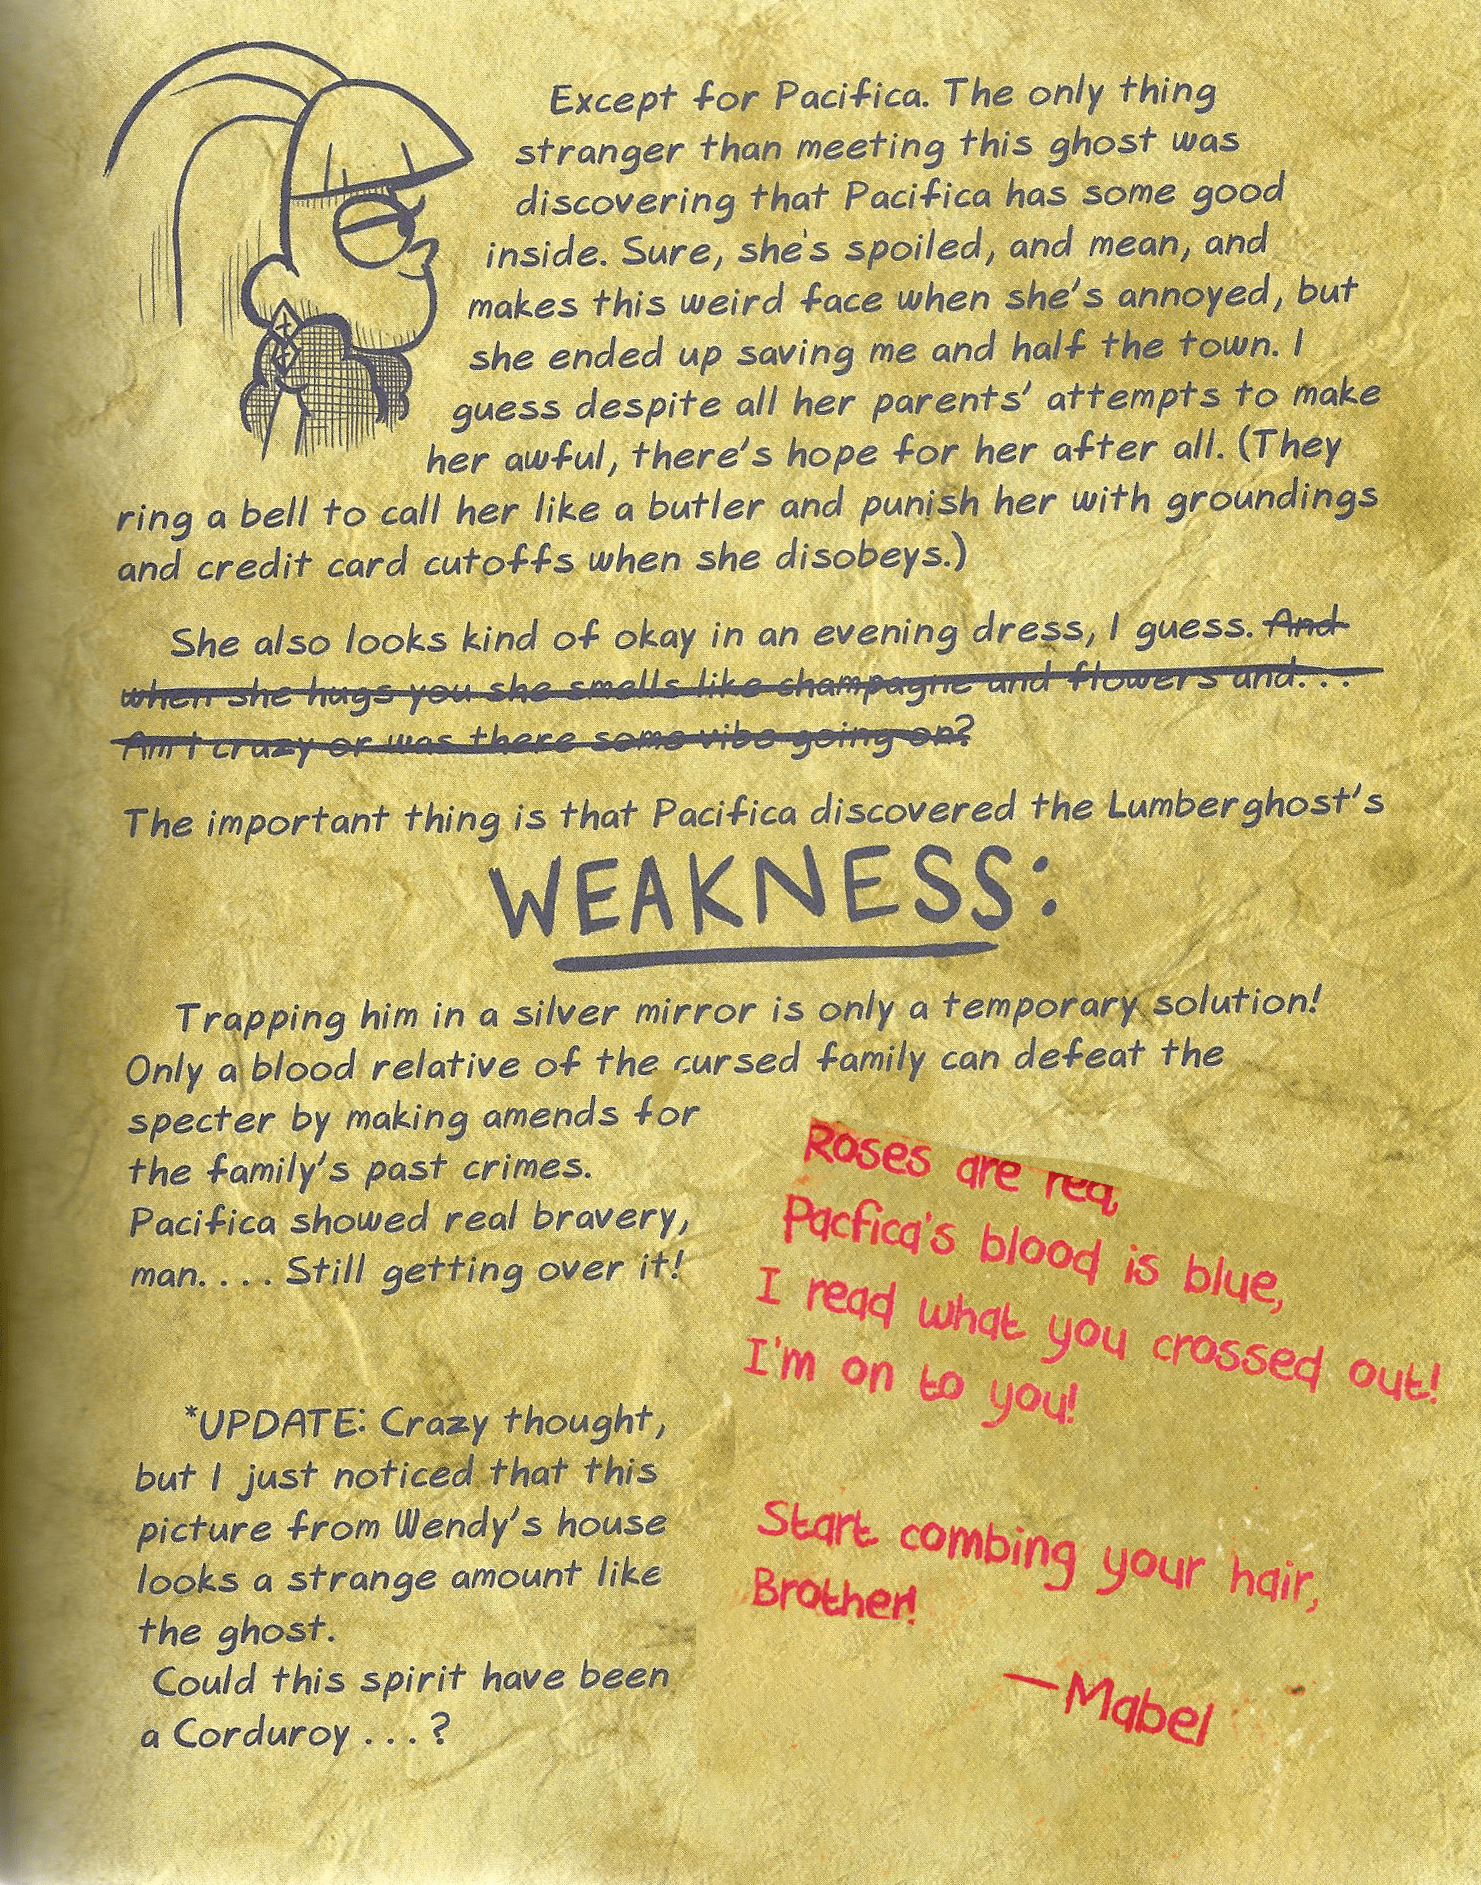 Except for Pacifica. The only thing
stranger than meeting this ghost was
discovering that Pacifica has some good
inside. Sure, she's spoiled, and mean, and
makes this weird face when she's annoyed, but
she ended up saving me and half the town. I
guess despite all her parents' attempts to make
her awful, there's hope for her after all. (They
ring a bell to call her like a butler and punish her with groundings
and credit card cutoffs when she disobeys.)
She also looks kind of okay in an evening dress, I guess. And
when she hugs you she smells like champagne and flowers and. . .
Am I crazy or was there some vibe going on?
The important thing is that Pacifica discovered the Lumberghost's
WEAKNESS:
Trapping him in a silver mirror is only a temporary solution!
Only a blood relative of the cursed family can defeat the
specter by making amends for
the family's past crimes.
Pacifica showed real bravery,
man. . . . Still getting over it!
Roses are red,
Pacfica's blood is blue,
I read what you crossed out!
I'm on to you!
Start combing your hair,
Brother!
—Mabel
*UPDATE: Crazy thought,
but I just noticed that this
picture from Wendy's house
looks a strange amount like
the ghost.
Could this spirit have been
a Corduroy . . . ?